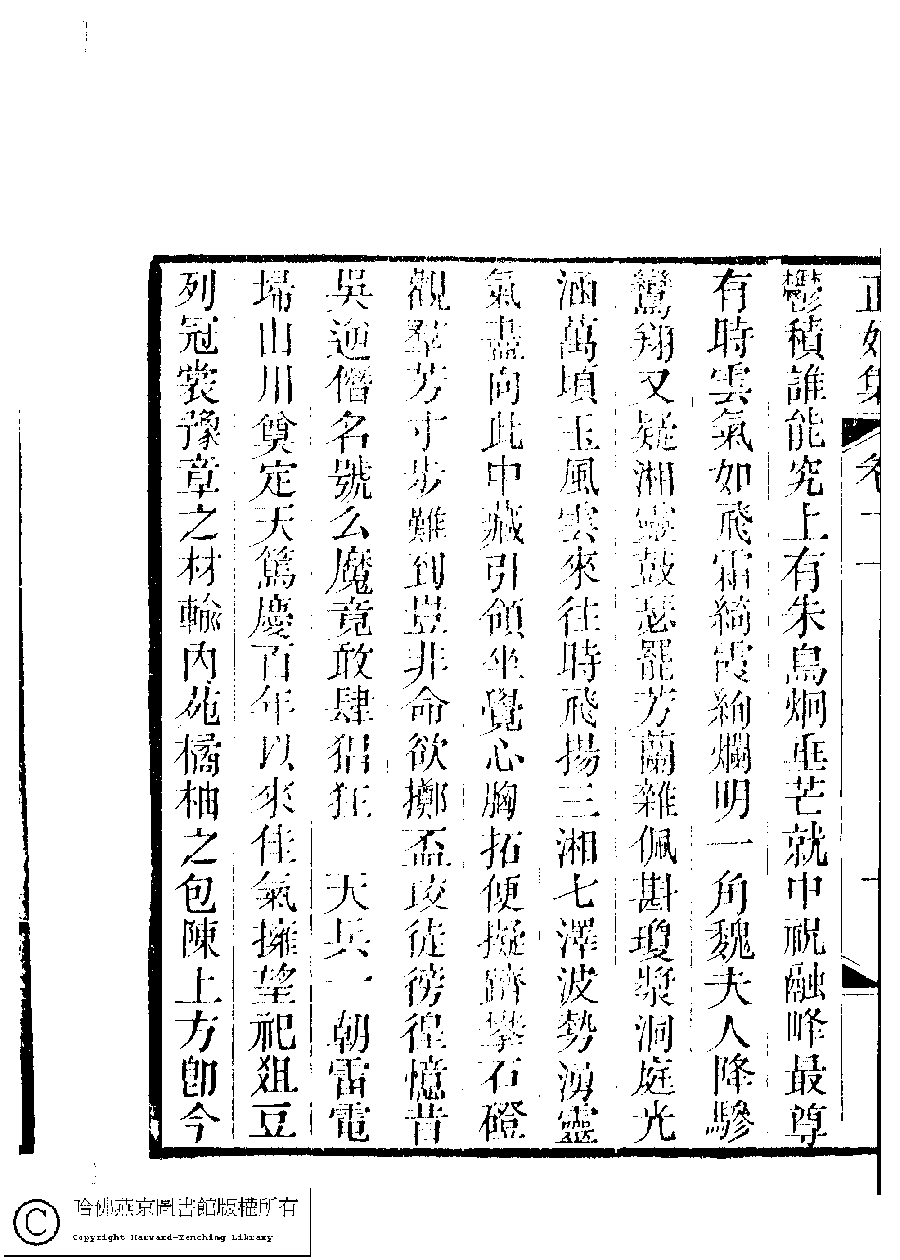 正始集 卷十一
鬱積誰能究上有朱鳥炯垂芒就中祝融峰最尊
有時雲氣如飛霜綺霞絢爛明一角魏夫人降驂
鸞翔又疑湘靈鼓瑟罷芳蘭雜佩斟瓊漿洞庭光
涵萬頃玉風雲來往時飛揚三湘七澤波勢湧靈
氣盡向此中藏引領坐覺心胸拓便擬躋攀石磴
觀羣芳寸步難到豈非命欲擲盃珓徒徬徨憶昔
吳逆僭名號么魔竟敢肆猖狂 天兵一朝雷電
埽山川奠定天篤慶百年以來佳氣擁望祀俎豆
列冠裳豫章之材輸內苑橘柚之包陳上方卽今
哈佛燕京圖書館版權所有
Copyright Harvard-Yenching Library